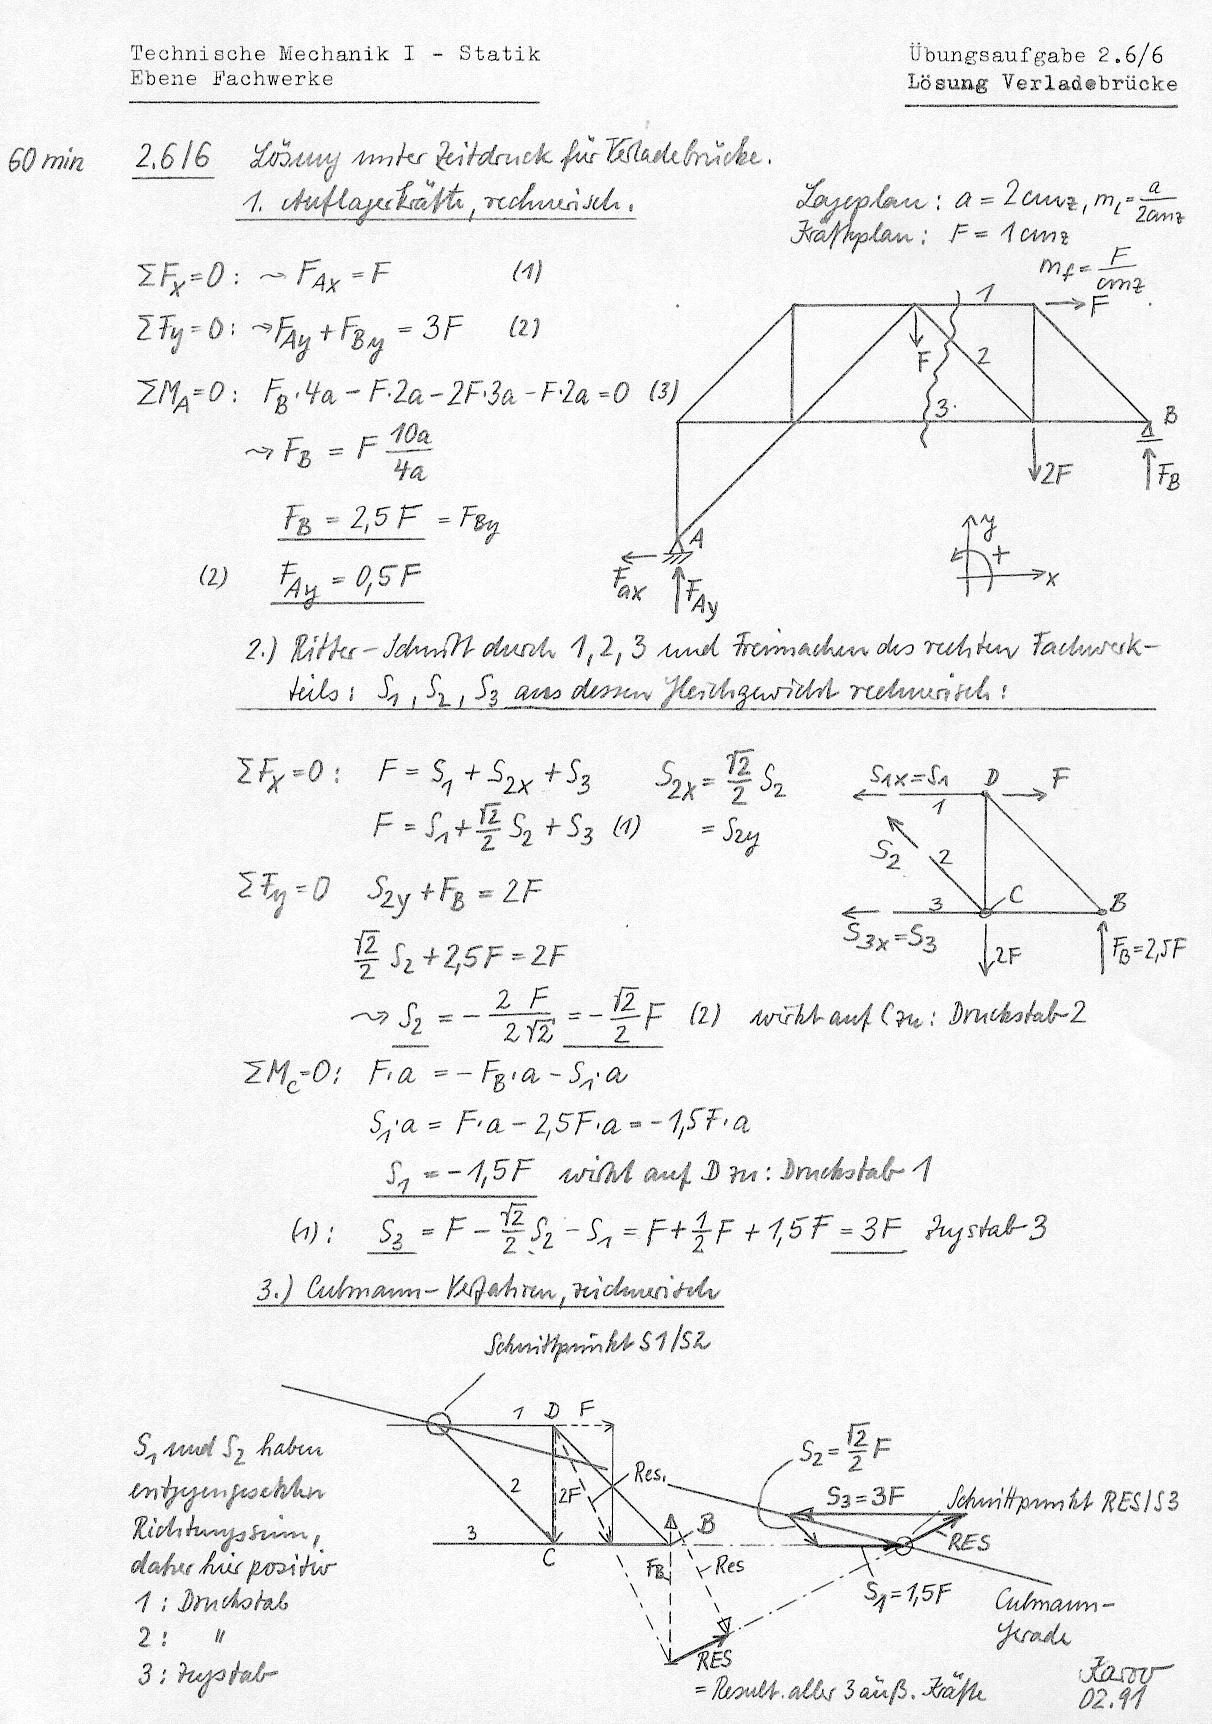 Technische Mechanik I - Statik
Ebene Fachwerke
Übungsaufgabe 2.6/6
Lösung Verladebrücke
60 min
2.6/6 Lösung unter Zeitdruck für Verladebrücke.
1. Auflagerkräfte, rechnerisch.
Lageplan: a = 2cmz, m_L = a/2cmz
Kräfteplan: F = 1cmz
m_f = F/cmz
ΣF_x=0: ⤳ F_Ax = F (1)
ΣF_y=0: ⤳ F_Ay + F_By = 3F (2)
ΣM_A=0: F_B·4a – F·2a – 2F·3a – F·2a = 0 (3)
⤳ F_B = F 10a/4a
F_B = 2,5F = F_By
(2) F_Ay = 0,5F
1
F
F
2
3
B
2F
F_B
A
F_ax
F_Ay
y
+
x
2.) Ritter-Schnitt durch 1, 2, 3 und Freimachen des rechten Fachwerk-
teils: S_1, S_2, S_3 aus dessen Gleichgewicht rechnerisch:
ΣF_x=0: F = S_1 + S_2x + S_3 S_2x = √2/2 S_2
F = S_1 + √2/2 S_2 + S_3 (1) = S_2y
ΣF_y=0 S_2y + F_B = 2F
√2/2 S_2 + 2,5F = 2F
⤳ S_2 = – 2 F/2√2 = – √2/2 F (2) wirkt auf C zu: Druckstab 2
ΣM_C=0: F·a = – F_B·a – S_1·a
S_1·a = F·a – 2,5F·a = –1,5F·a
S_1 = –1,5F wirkt auf D zu: Druckstab 1
(1): S_3 = F – √2/2 S_2 – S_1 = F + 1/2 F + 1,5F = 3F Zugstab 3
S_1x=S_1
D
F
1
S_2
2
3
C
B
S_3x=S_3
2F
F_B=2,5F
3.) Culmann-Verfahren, zeichnerisch
Schnittpunkt S1/S2
1 D F
2
2F
Res.
3
C
B
F_B
Res
RES
= Result. aller 3 äuß. Kräfte
S_2 = √2/2 F
S_3 = 3F
Schnittpunkt RES/S3
RES
S_1 = 1,5F
Culmann-
Gerade
S_1 und S_2 haben
entgegengesetzten
Richtungssinn,
daher hier positiv
1 : Druckstab
2 : "
3 : Zugstab
02.91